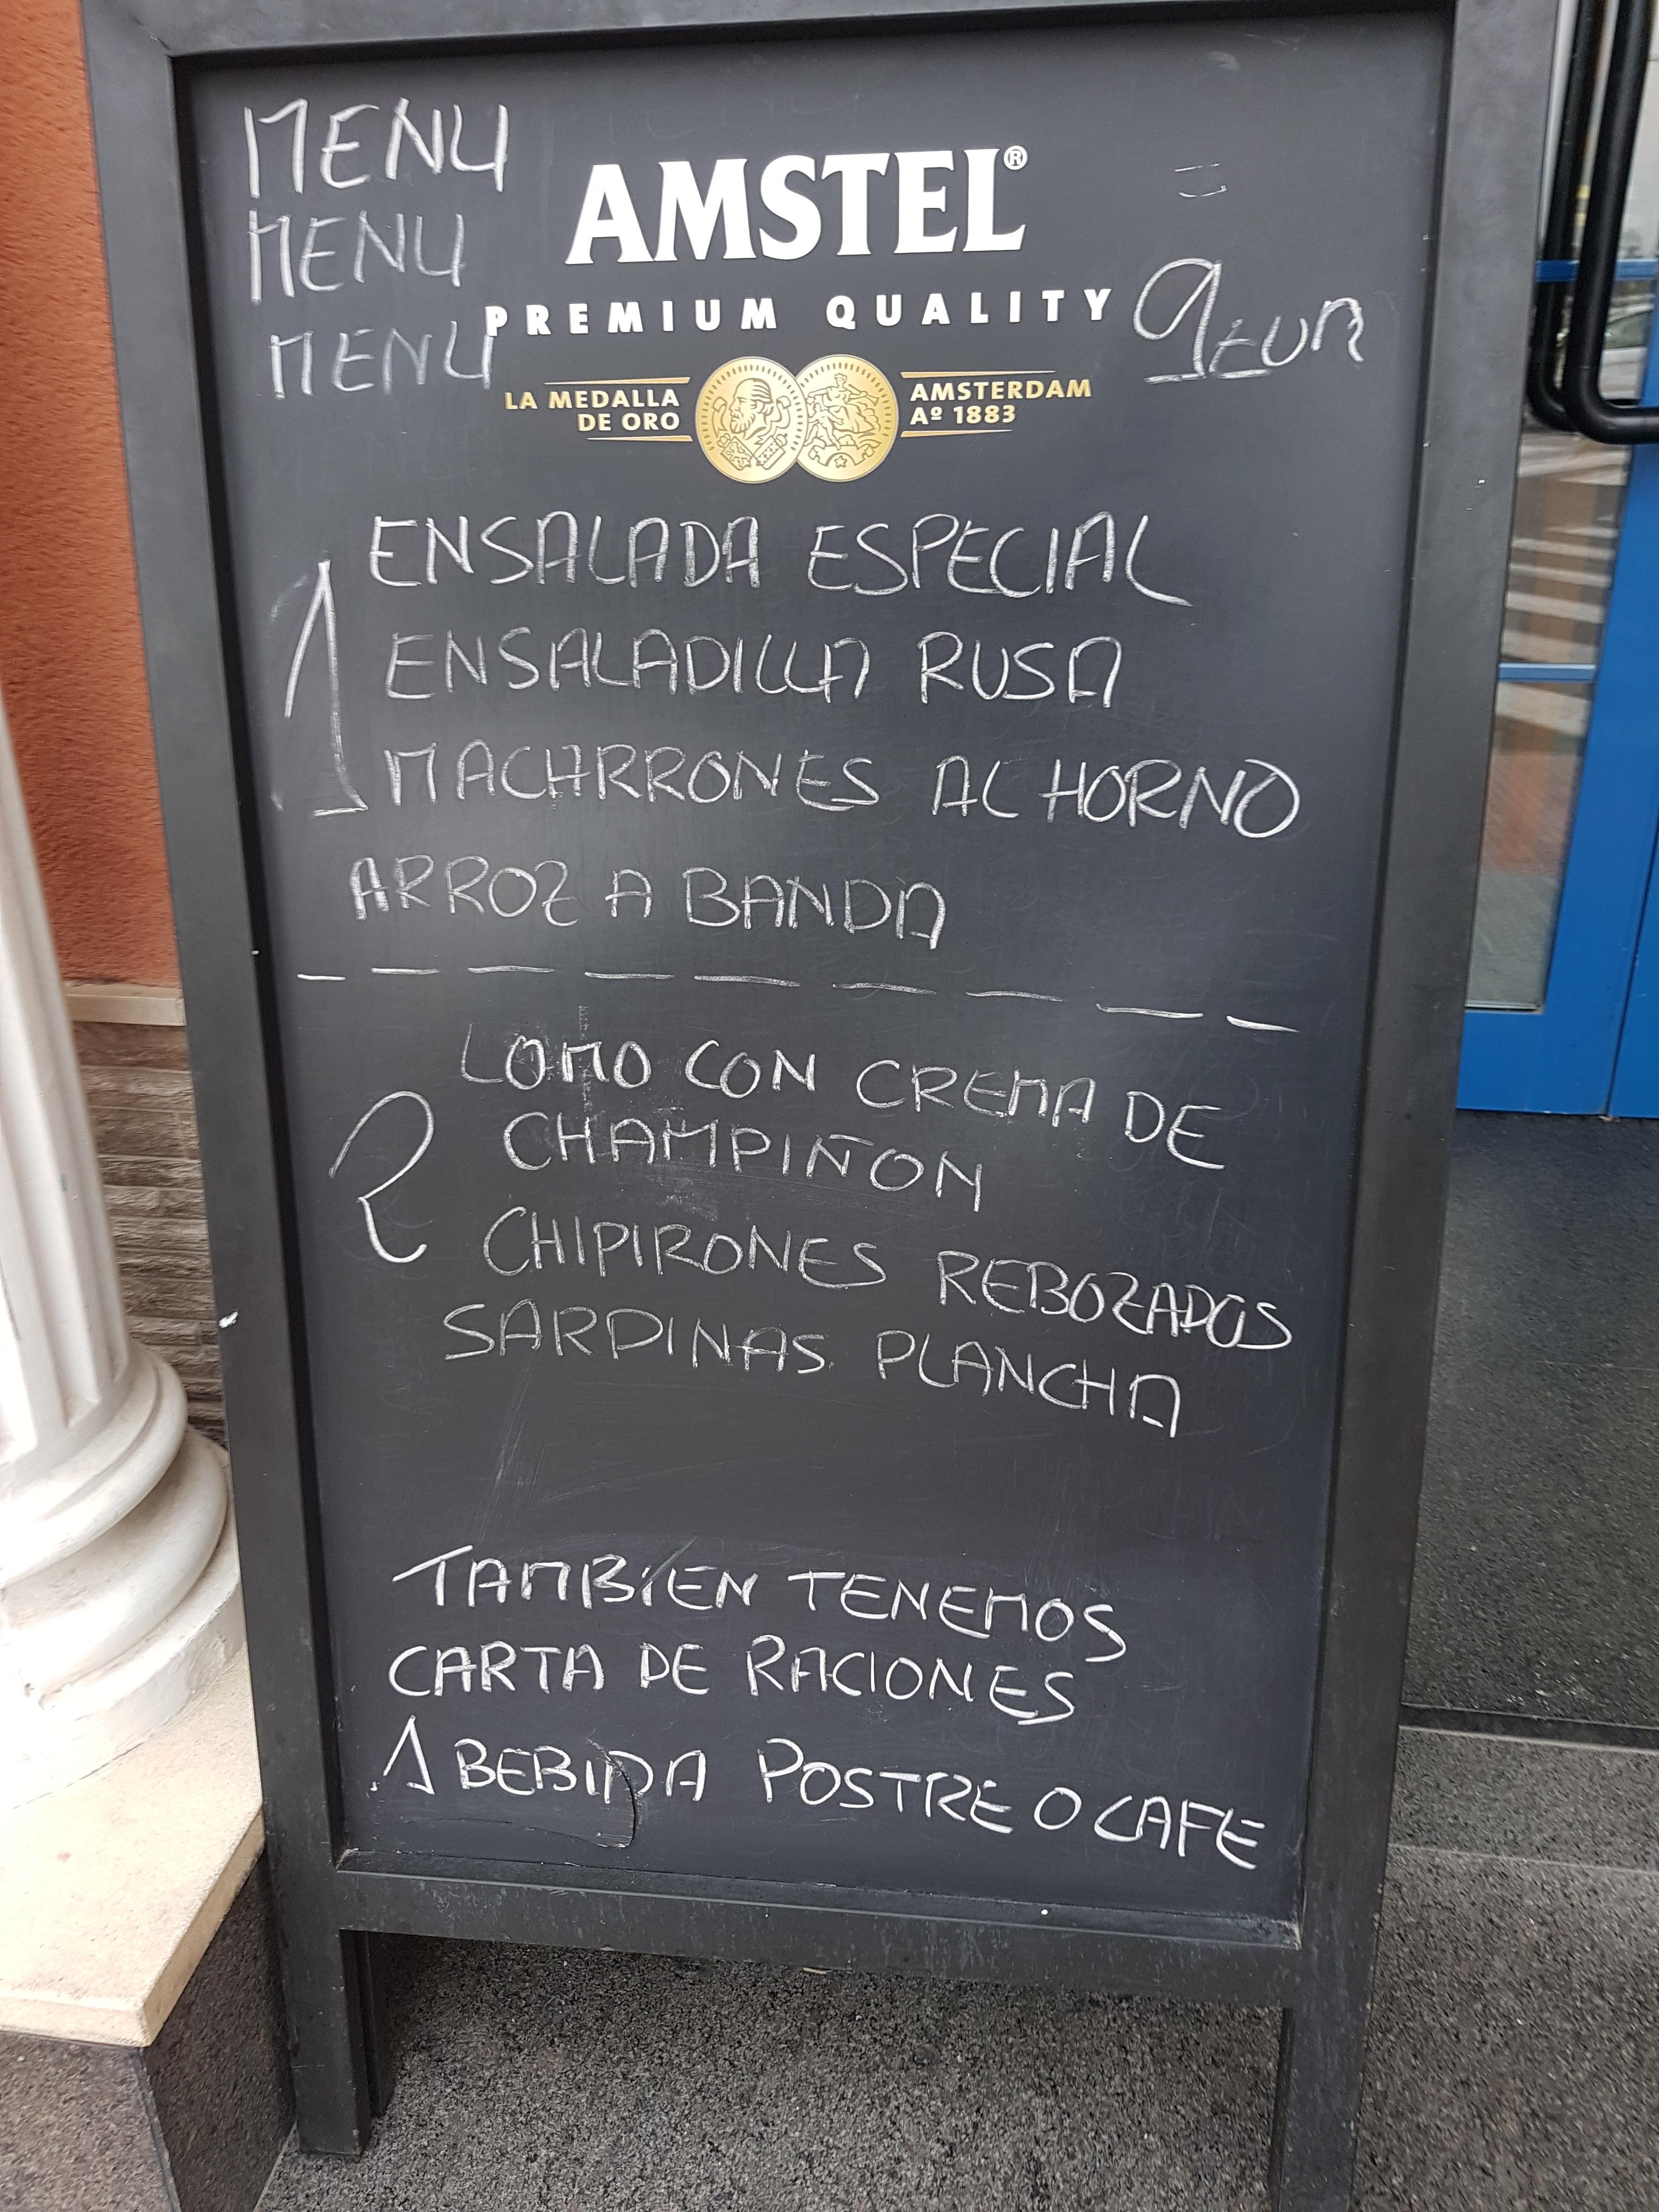 MENU
MENU
MENU
AMSTEL®
PREMIUM QUALITY
9 EUR
LA MEDALLA DE ORO
AMSTERDAM Aº 1883
1
ENSALADA ESPECIAL
ENSALADILLA RUSA
MACARRONES AL HORNO
ARROZ A BANDA
2
LOMO CON CREMA DE
CHAMPIÑON
CHIPIRONES REBOZADOS
SARDINAS PLANCHA
TAMBIEN TENEMOS
CARTA DE RACIONES
1 BEBIDA POSTRE O CAFE